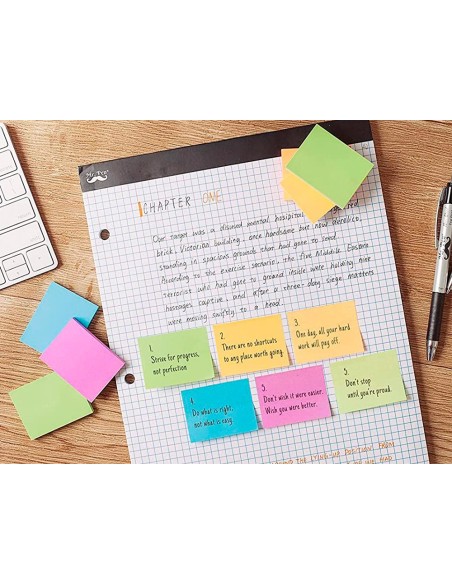 Mr. Pen
CHAPTER ONE
Our target was a disused mental hospital
brick, Victorian building, once handsome but now derelict,
standing in spacious grounds that had gone to seed.
According to the exercise scenario, the five Middle Eastern
terrorists who had gone to ground inside were holding nine
hostages captive, and after a three-day siege matters
were moving swiftly to a head.
1.
Strive for progress,
not perfection
2.
There are no shortcuts
to any place worth going.
3.
One day, all your hard
work will pay off.
4.
Do what is right,
not what is easy.
5.
Don't wish it were easier.
Wish you were better.
5.
Don't stop
until you're proud.
POSITION, FROM
HAD